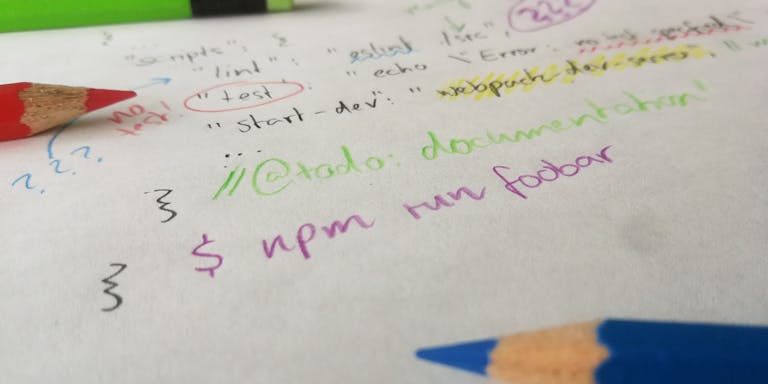 {
...
"scripts": {
"lint": "eslint ./src",
"test": "echo \"Error: no test
"start-dev": "webpack-dev-server",
...
//@todo: documentation!
}
$ npm run foobar
}
no test!
???
???